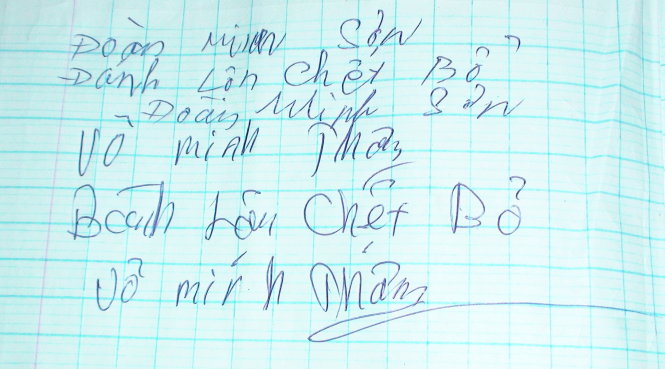 Đoàn Minh Sơn
Đánh Lộn Chết Bỏ
Đoàn Minh Sơn
Võ minh Thân
Lộn Chết Bỏ
Võ minh Thân